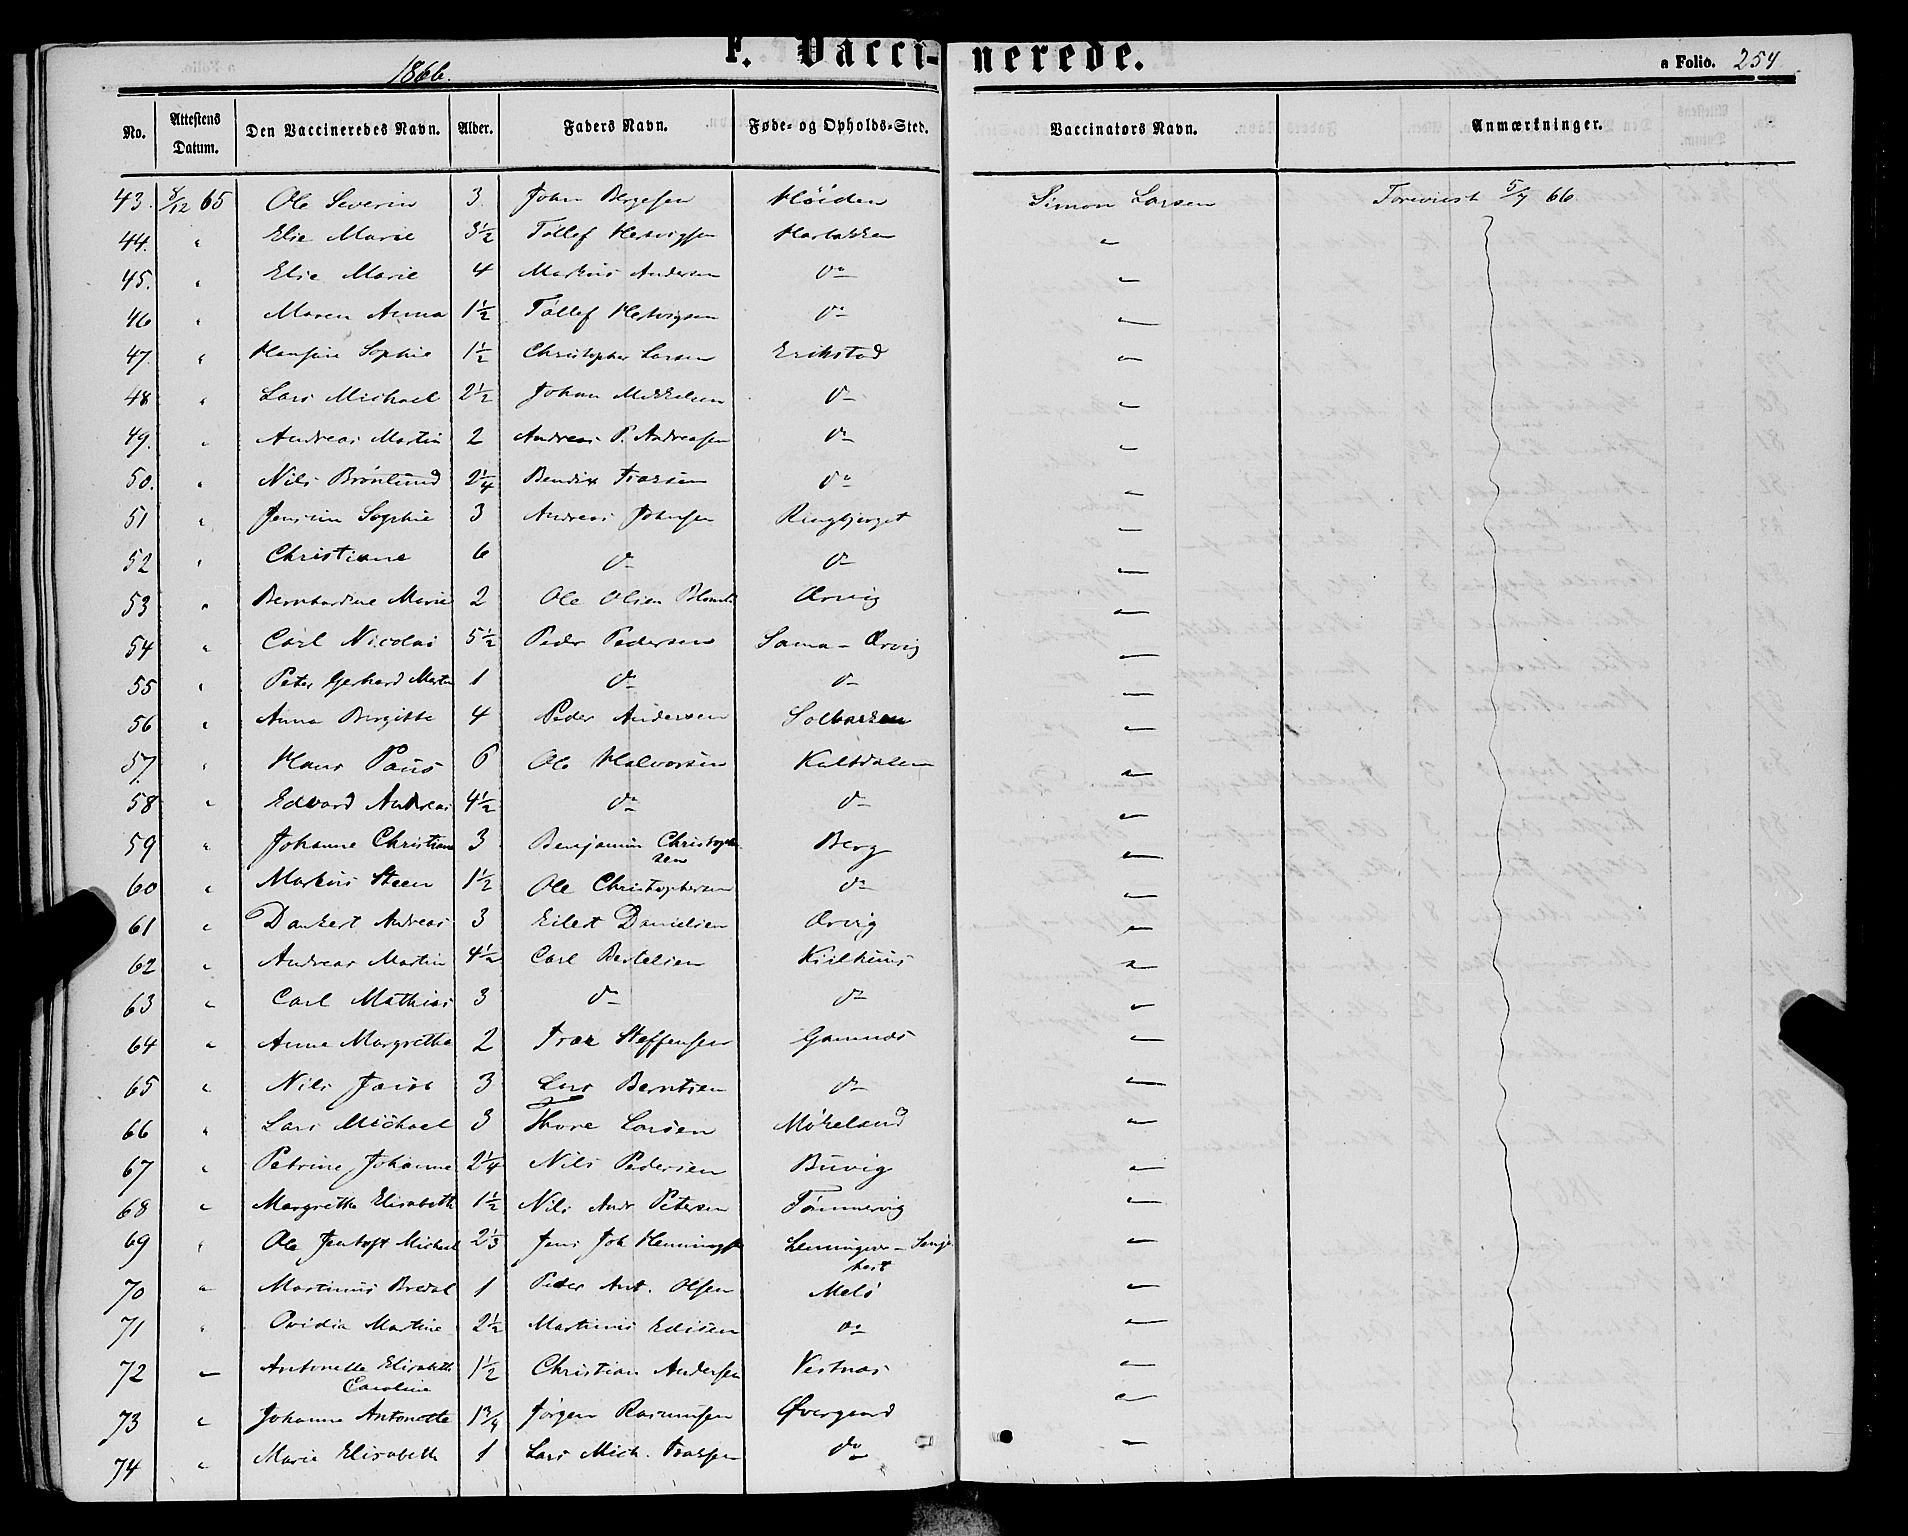 F. Vacci- nerede.
1866.
a Folio. 254
No. Attestens Datum. Den Vaccineredes Navn. Alder. Faders Navn. Føde- og Opholds-Sted. Vaccinators Navn. Anmærkninger.
43. 8/12 65 Ole Severin 3. Johan Bergesen Høiden Simon Larsen Foreviist 5/7 66
44. " Elie Marie 3½ Tøllef Hertvigsen Harbakken "
45. " Elie Marie 4 Markus Andersen do "
46 " Maren Anna 1½ Tøllef Hertvigsen do "
47. " Hansine Sophie 1½ Christopher Larsen Erikstad "
48 " Lars Michael 2½ Johan Mikkelsen do "
49. " Andreas Martin 2 Andreas P. Andreasen do "
50. " Nils Brønlund 2¼ Bendix do "
51 " Jensine Sophie 3 Andreas Johnsen Ringbjerget "
52 " Christiane 6 do do "
53 " Bernhardine Marie 2 Ole Olsen Ørvig "
54 " Carl Nicolai 5½ Peder Pedersen Sama - Ørvig "
55 " Peter Gerhard Martin 1 do do "
56 " Anna Birgitte 4 Peder Andersen Solbakken "
57. " Hans Paus 6 Ole Halvorsen Kaltdalen "
58 " Edvard Andreas 4½ do do "
59 " Johanne Christiane 3 Benjamin Christopher-
sen Berg "
60 " Markus Steen 1½ Ole Christophersen do "
61 " Dankert Andreas 3 Eilert Danielsen Ørvig "
62 " Andreas Martin 4½ Carl Bertelsen Kiilhuus "
63 " Carl Mathias 3 do do "
64 " Anne Margrethe 2 Steffensen "
65 " Nils Jacob 3 Lars Berntsen do "
66 " Lars Michael 3 Thore Larsen Møkeland "
67 " Petrine Johanne 2¼ Nils Pedersen Buvig "
68 " Margrethe Elisabeth 1½ Nils Andr Petersen Tømmervig "
69 " Ole Jentoft Michael 2⅓ Jens Joh Henningsen "
70 " Martinus Bredal 1 Peder Ant. Olsen Melø "
71 " Ovidia Martine 2½ Martinus Edisen do "
72 " Antonette Elisabeth
Caroline 1½ Christian Andersen Vestnes "
73 " Johanne Antonette 1¾ Jørgen Rasmussen Øvergaard "
74 " Marie Elisabeth 1 Lars Mich. do "